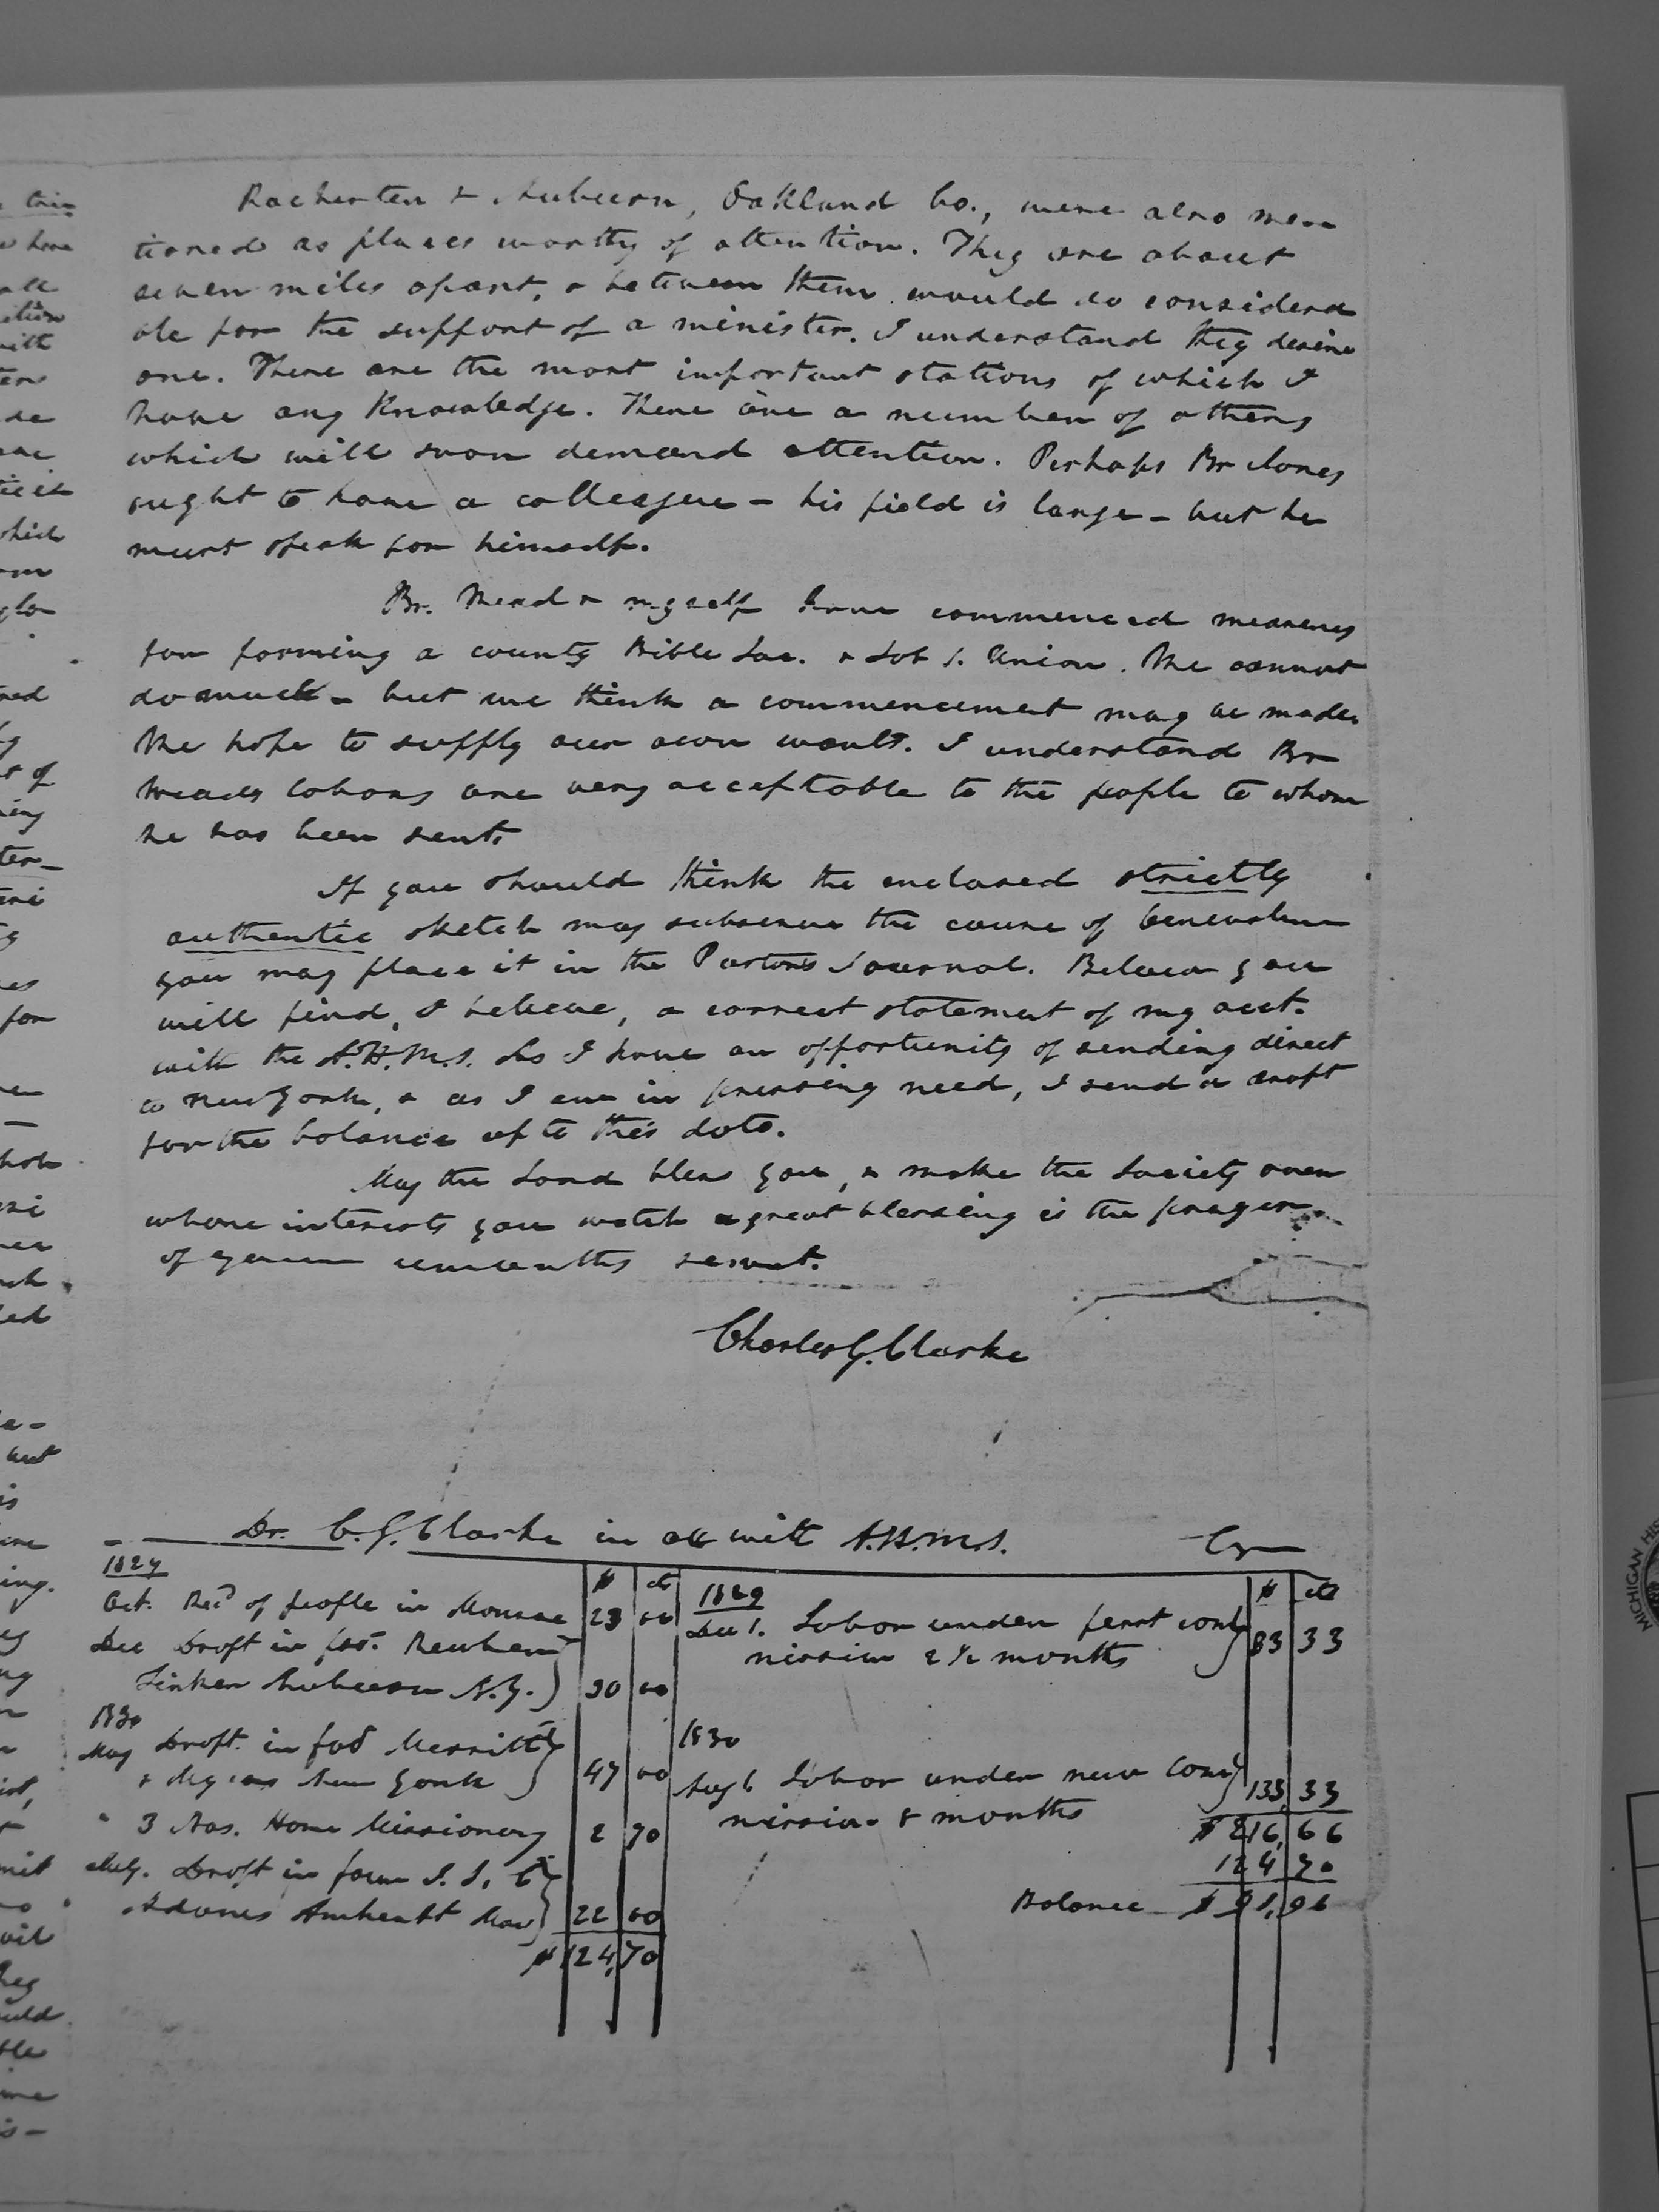 Rochester & Auburn, Oakland Co., were also men
tioned as places worthy of attention. They are about
seven miles apart, & between them would do considera
ble for the support of a minister. I understand they desire
one. These are the most important stations of which I
have any knowledge. There are a number of others
which will soon demand attention. Perhaps Br Jones
ought to have a colleague - his field is large - but he
must speak for himself.
Br. Mead & myself have commenced measures
for forming a county Bible Soc. & Sab S. Union. We cannot
do much - but we think a commencement may be made.
We hope to supply our own wants. I understand Br
Meads labors are very acceptable to the people to whom
he has been sent.
If you should think the enclosed strictly
authentic sketch may subserve the cause of benevolence
you may place it in the Pastors Journal. Below you
will find, I believe, a correct statement of my acct.
with the A.H.M.S. As I have an opportunity of sending direct
to New York, & as I am in pressing need, I send a draft
for the balance up to this date.
May the Lord bless you, & make the Society over
whose interests you watch a great blessing is the prayer
of your unworthy servant.
Charles G. Clarke
Dr. C. G. Clarke in acc with A.H.M.S. Cr
1829 $ cts 1829 $ cts
Oct. Recd of people in Monroe 23 00 Dec 1. Labor under first com
Dec Draft in favr. Reuben mission 2 1/2 months 83 33
Auburn N.Y. 30 00
1830
May Draft in favr Merritt 1830
New York 47 00 Labor under new com
" 3 Nos. Home Missionary 2 70 mission months 133, 33
$ 216, 66
July. Draft in favor 124 70
Adams Amherst Mass 22 00 Balance $ 91, 96
$ 124, 70
MICHIGAN HIS